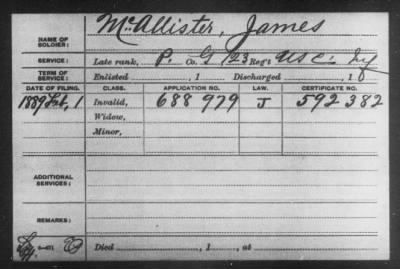 NAME OF SOLDIER: McAllister, James
SERVICE: Late rank, P. Co. G 123 Reg't U S C. Inf
TERM OF SERVICE: Enlisted , 1 Discharged , 1
DATE OF FILING. CLASS. APPLICATION NO. LAW. CERTIFICATE NO.
1889 Feb, 1 Invalid, 688 979 J 592 382
Widow,
Minor,
ADDITIONAL SERVICES:
REMARKS:
Died , 1 , at